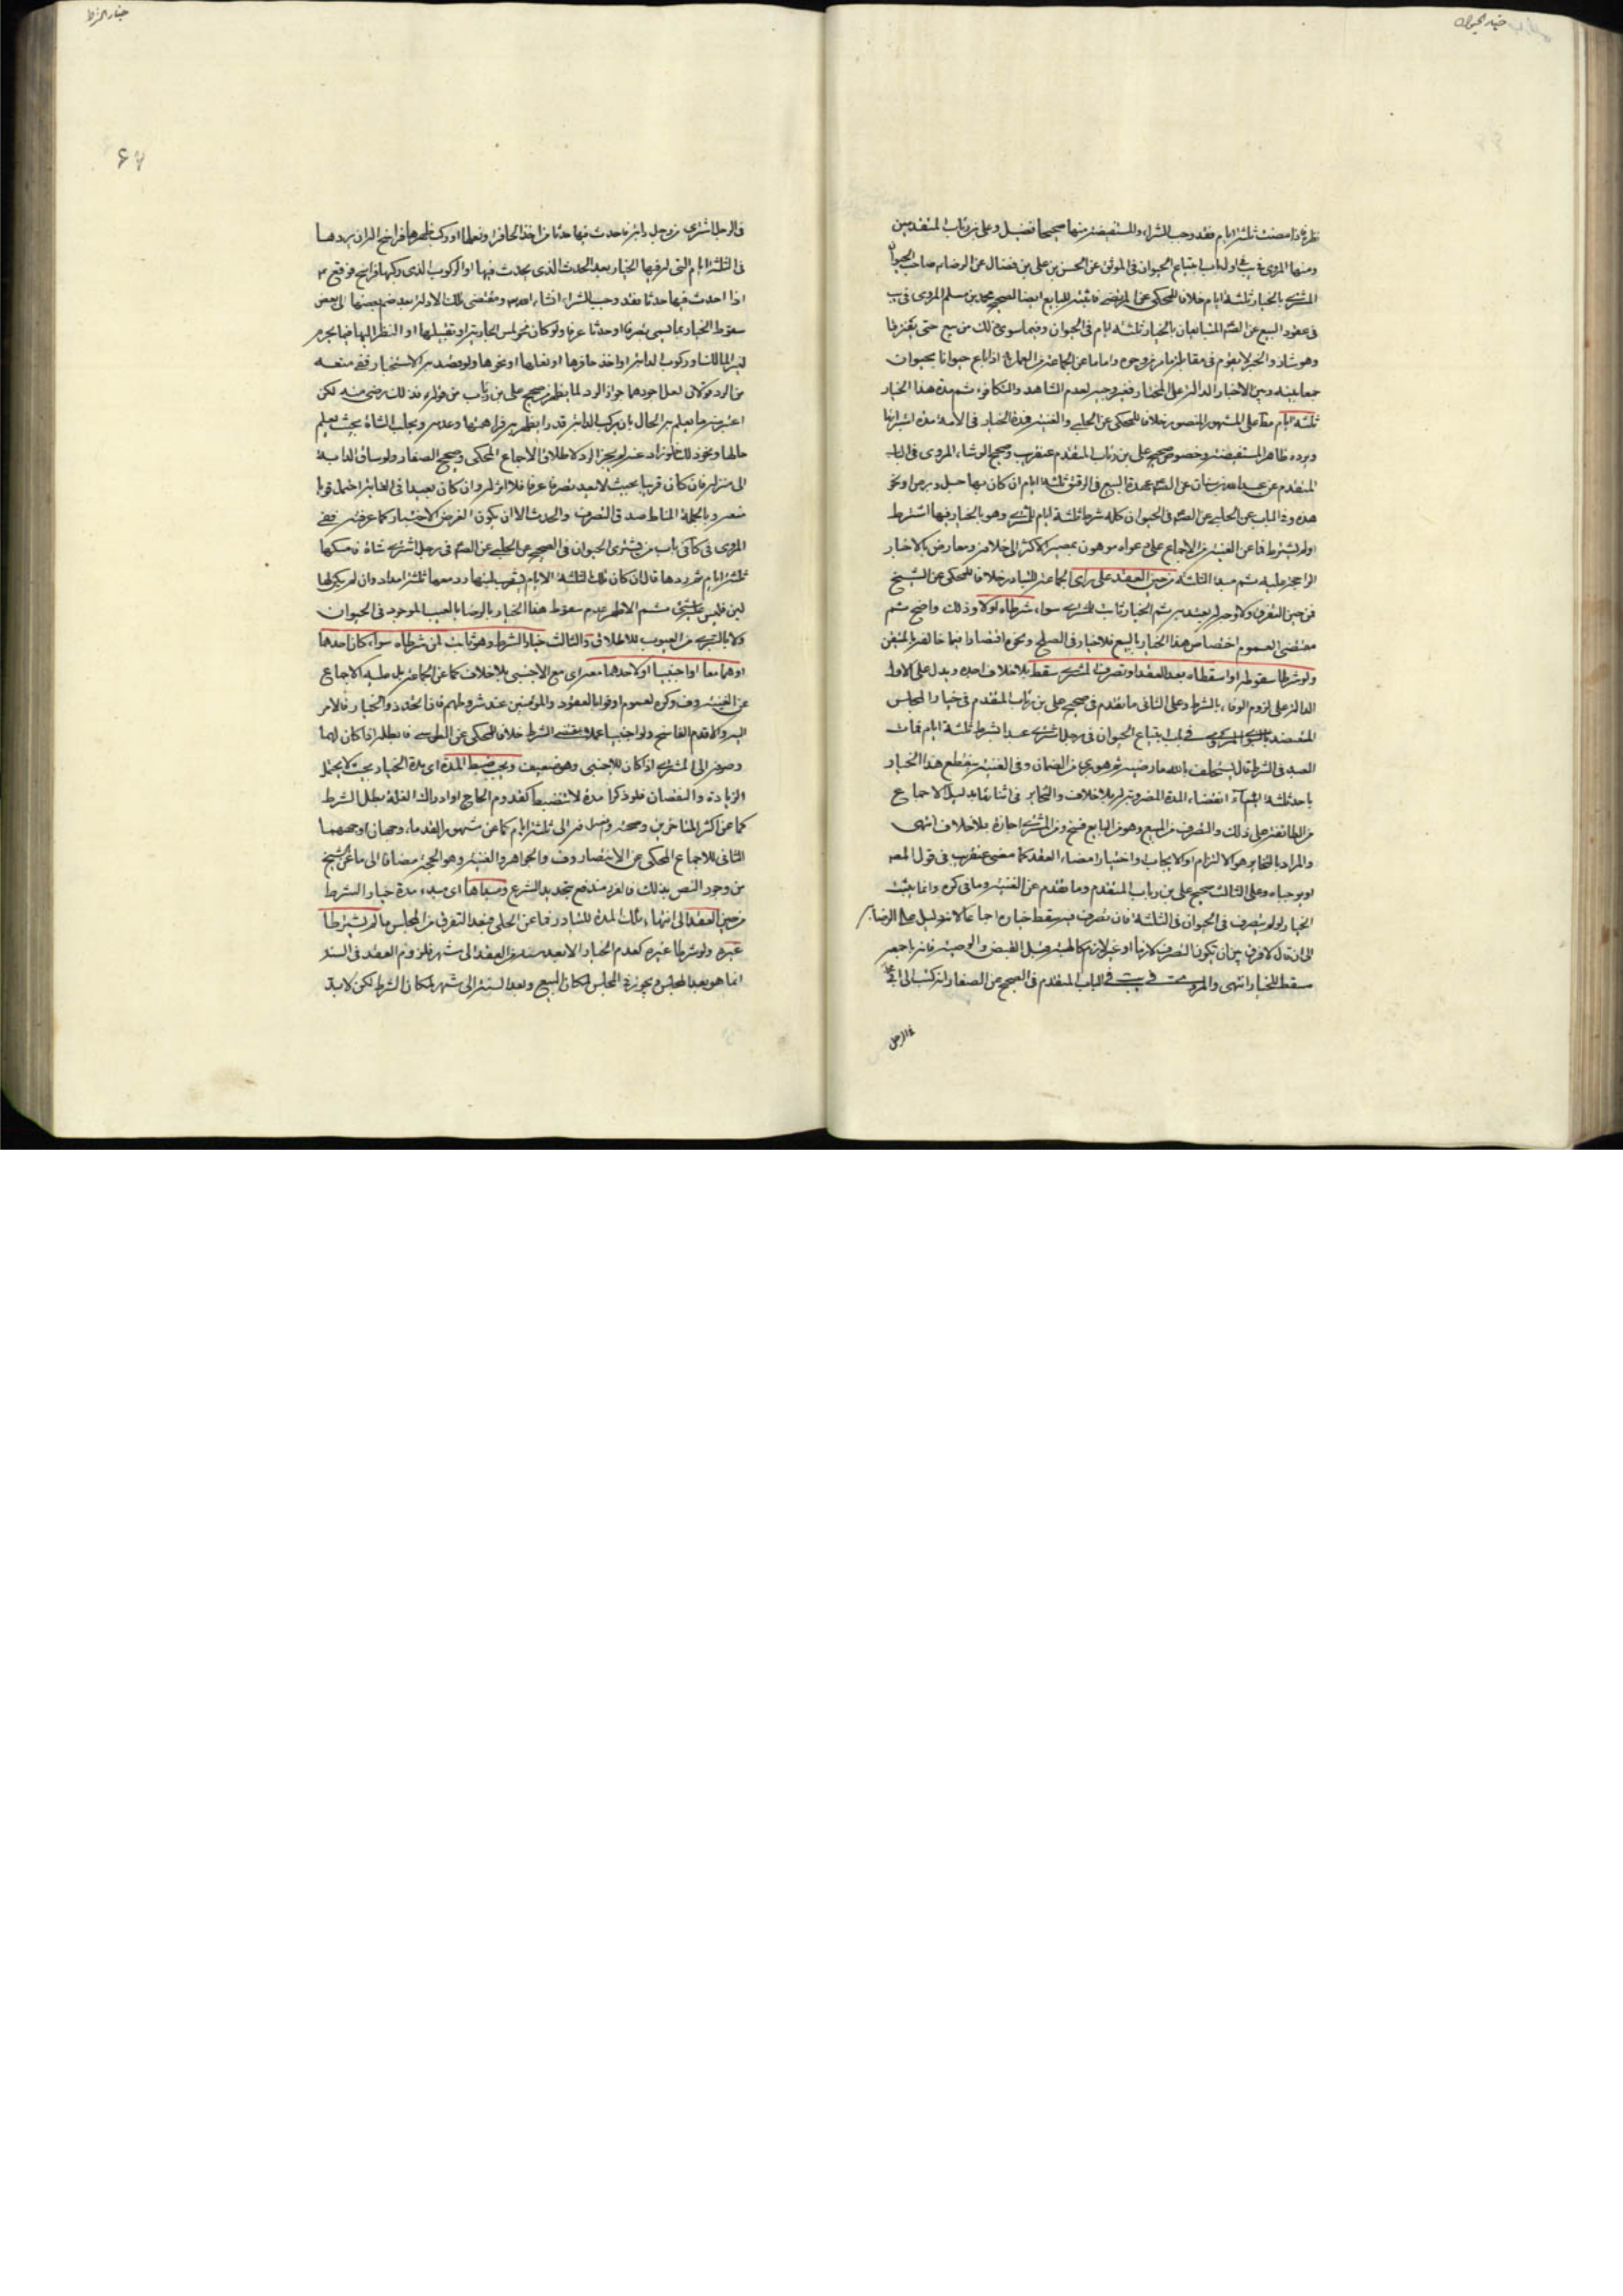 خيار الحيوان
نظرة فاذا مضت ثلثة ايام فقد وجب الشراء والمستفيضة منها صحيحا فضيل وعلى بن رئاب المتقدمين
ومنها المروى فى يب فى اول باب ابتياع الحيوان فى الموثق عن الحسن بن على بن فضال عن الرضا م صاحب الحيوان
المشترى بالخيار ثلثة ايام خلافا للمحكى عن المرتضى فاثبته للبايع ايضا لصحيح محمد بن مسلم المروى فى يب
فى عقود البيع عن الصم المتبايعان بالخيار ثلثة ايام فى الحيوان وفيما سوى ذلك من بيع حتى يفترقا
وهو شاذ والخبر لا يقوم فى مقابلة ما مر من وجوه واما ما عن الجماعة من العمل به اذا باع حيوانا بحيوان
جمعا بينه وبين الاخبار الدالة على المختار ففير وجيه لعدم الشاهد والتكافوء ثم مدة هذا الخيار
ثلثة ايام مط على المشهور المنصور خلافا للمحكى عن الحلبى والغنية فمدة الخيار فى الامة مدة استبرائها
ويرده ظاهر المستفيضة وخصوص صحيح على بن رئاب المتقدم عنقريب وصحيح الوشاء المروى فى الباب
المتقدم عن عبد الله بن سنان عن الصم عهدة البيع فى الرقيق ثلثة ايام ان كان بها حبل او برص او نحو
هذه وفى الباب عن الحلبى عن الصم فى الحيوان كله شرط ثلثة ايام للمشترى وهو بالخيار فيها اشترط
او لم يشترط فما عن الغنية من الاجماع على دعواه موهون بمصير الاكثر الى خلافه ومعارض بالاخبار
الراجحة عليه ثم مبدا الثلثة من حين العقد على راى الجماعة للتبادر خلافا للمحكى عن الشيخ
فمن حين التفرق ولا وجه له يعتد به ثم الخيار ثابت للمشترى سواء شرطاه او لا وذلك واضح ثم
مقتضى العموم اختصاص هذا الخيار بالبيع فلا خيار فى الصلح ونحوه اقتصارا فيما خالف المتيقن
ولو شرطا سقوطه او اسقطاه بعد العقد او تصرف المشترى سقط بلا خلاف اجده ويدل على الاول
الدالة على لزوم الوفاء بالشرط وعلى الثانى ما تقدم فى صحيح على بن رئاب المتقدم فى خيار المجلس
المعتضد بالنبوى المروى فى باب ابتياع الحيوان فى رجل اشترى عبدا بشرط ثلثة ايام فمات
العبد فى الشرط قال يستحلف بالله ما رضيه ثم هو برى من الضمان وفى الغنية ينقطع هذا الخيار
باحد ثلثة اشياء انقضاء المدة المضروبة له بلا خلاف والتخاير فى اثنائها بدليل الاجماع
من الطائفة على ذلك والتصرف من المبيع وهو من البايع فسخ ومن المشترى اجازة بلا خلاف انتهى
والمراد بالتخاير هو الالتزام او الايجاب واختيار امضاء العقد كما مضى عنقريب فى قول المصه
اوجباه وعلى الثالث صحيح على بن رئاب المتقدم وما تقدم عن الغنية وما فى كره وانما يثبت
الخيار لو لم يتصرف فى الحيوان فى الثلثة فان تصرف فيه سقط خياره اجماعا لانه دليل على الرضا به
الى ان قال لا فرق بين ان يكون التصرف لازما او غير لازم كالهبة قبل القبض والوصية فانه باجمعه
سقط للخيار انتهى والمروى فى يب فى الباب المتقدم فى الصحيح عن الصفار انه كتب الى ابى محمد
فى الرجل
خيار الشرط
فى الرجل اشترى من رجل دابة فاحدث فيها حدثا من اخذ الحافر او نعلها او ركب ظهرها فراسخ اله ان يردها
فى الثلثة الايام التى له فيها الخيار بعد الحدث الذى يحدث فيها او الركوب الذى ركبها فراسخ فوقع م
اذا احدث فيها حدثا فقد وجب الشراء انشاء الله ومقتضى تلك الادلة بعد ضم بعضها الى بعض
سقوط الخيار بما يسمى تصرفا وحدثا عرفا ولو كان نحو لمس الجارية او تقبيلها او النظر اليها فيما يحرم
لغير المالك او ركوب الدابة او اخذ حافرها او نعلها او نحوها ولو قصد به الاستخبار ففى منعه
من الرد قولان لعل اجودهما جواز الرد لما يظهر من صحيح على بن رئاب من قوله فذلك رضى منه لكن
اعتبر منه ما يعلم به الحال بان يركب الدابة قدرا يظهر به فراهتها وعدمه ويحلب الشاة بحيث يعلم
حالها ونحو ذلك فلو زاد عنه لم يجز الرد لاطلاق الاجماع المحكى وصحيح الصفار ولو ساق الدابة
الى منزله فان كان قريبا بحيث لا يعد تصرفا عرفا فلا اثر له وان كان بعيدا فى الغاية احتمل قويا
منعه وبالجملة المناط صدق التصرف والحدث الا ان يكون الغرض الاختبار كما عرفته ففى
المروى فى كافى باب من يشترى الحيوان فى الصحيح عن الحلبى عن الصم فى رجل اشترى شاة فامسكها
ثلثة ايام ثم ردها قال ان كان تلك الثلثة الايام يشرب لبنها رد معها ثلثة امداد وان لم يكن لها
لبن فليس عليه شئ ثم الاظهر عدم سقوط هذا الخيار بالرضا بالعيب الموجود فى الحيوان
ولا بالتبرى من العيوب للاطلاق والثالث خيار الشرط وهو ثابت لمن شرطاه سواء كان احدهما
او هما معا او اجنبيا او لاحدهما معه اى مع الاجنبى بلا خلاف كما عن الجماعة بل عليه الاجماع
عن الغنية وف وكره لعموم اوفوا بالعقود والمؤمنين عند شروطهم فاذا اتحد ذو الخيار فالامر
اليه والا قدم الفاسخ ولو اجنبيا عملا بمقتضى الشرط خلافا للمحكى عن الطوسى فابطله اذا كان لهما
وصوفه الى المشترى اذا كان للاجنبى وهو ضعيف ويجب ضبط المدة اى مدة الخيار بحيث لا يحتمل
الزيادة والنقصان فلو ذكرا مدة لا تنضبط كقدوم الحاج او ادراك الغلة بطل الشرط
كما عن اكثر المتاخرين وصحته وصرفه الى ثلثة ايام كما عن مشهور القدماء وجهان اوجههما
الثانى للاجماع المحكى عن الانتصار وف والجواهر والغنية وهو الحجة مضافا الى ما عن الشيخ
من وجود النص بذلك فالغرر مندفع بتحديد الشرع ومبداها اى مبدء مدة خيار الشرط
من حين العقد الى انتهاء تلك المدة للتبادر فما عن الحلى فبعد التفرق من المجلس ما لم يشترطا
غيره ولو شرطا غيره كعدم الخيار الا بعد سنة من العقد الى شهر فلزوم العقد فى السنة
انما هو بعد المجلس ويجوز فى المجلس لمكان البيع وبعد السنة الى شهر لمكان الشرط لكن لابد